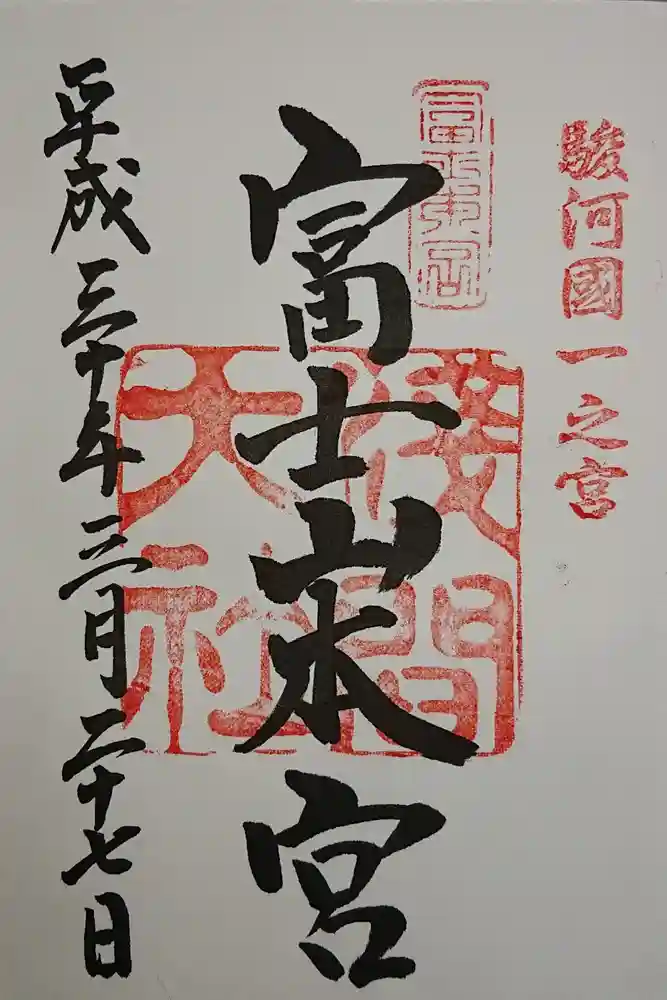 駿河國一之宮
富士山本宮
淺間
大社
平成三十年三月二十七日